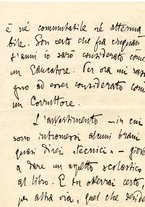 è né commutabile né attermina
bile. Son certo che fra cinquan
t'anni io sarò considerato come
un Educatore. Per ora mi ras
segno ad esser considerato come
un Corruttore.
L'avvertimento — in cui
sono intromessi alcuni brani
quasi direi tecnici —
a dare un aspetto scolastico
al libro. E tu otterrai certo,
per altra via, quel che desider